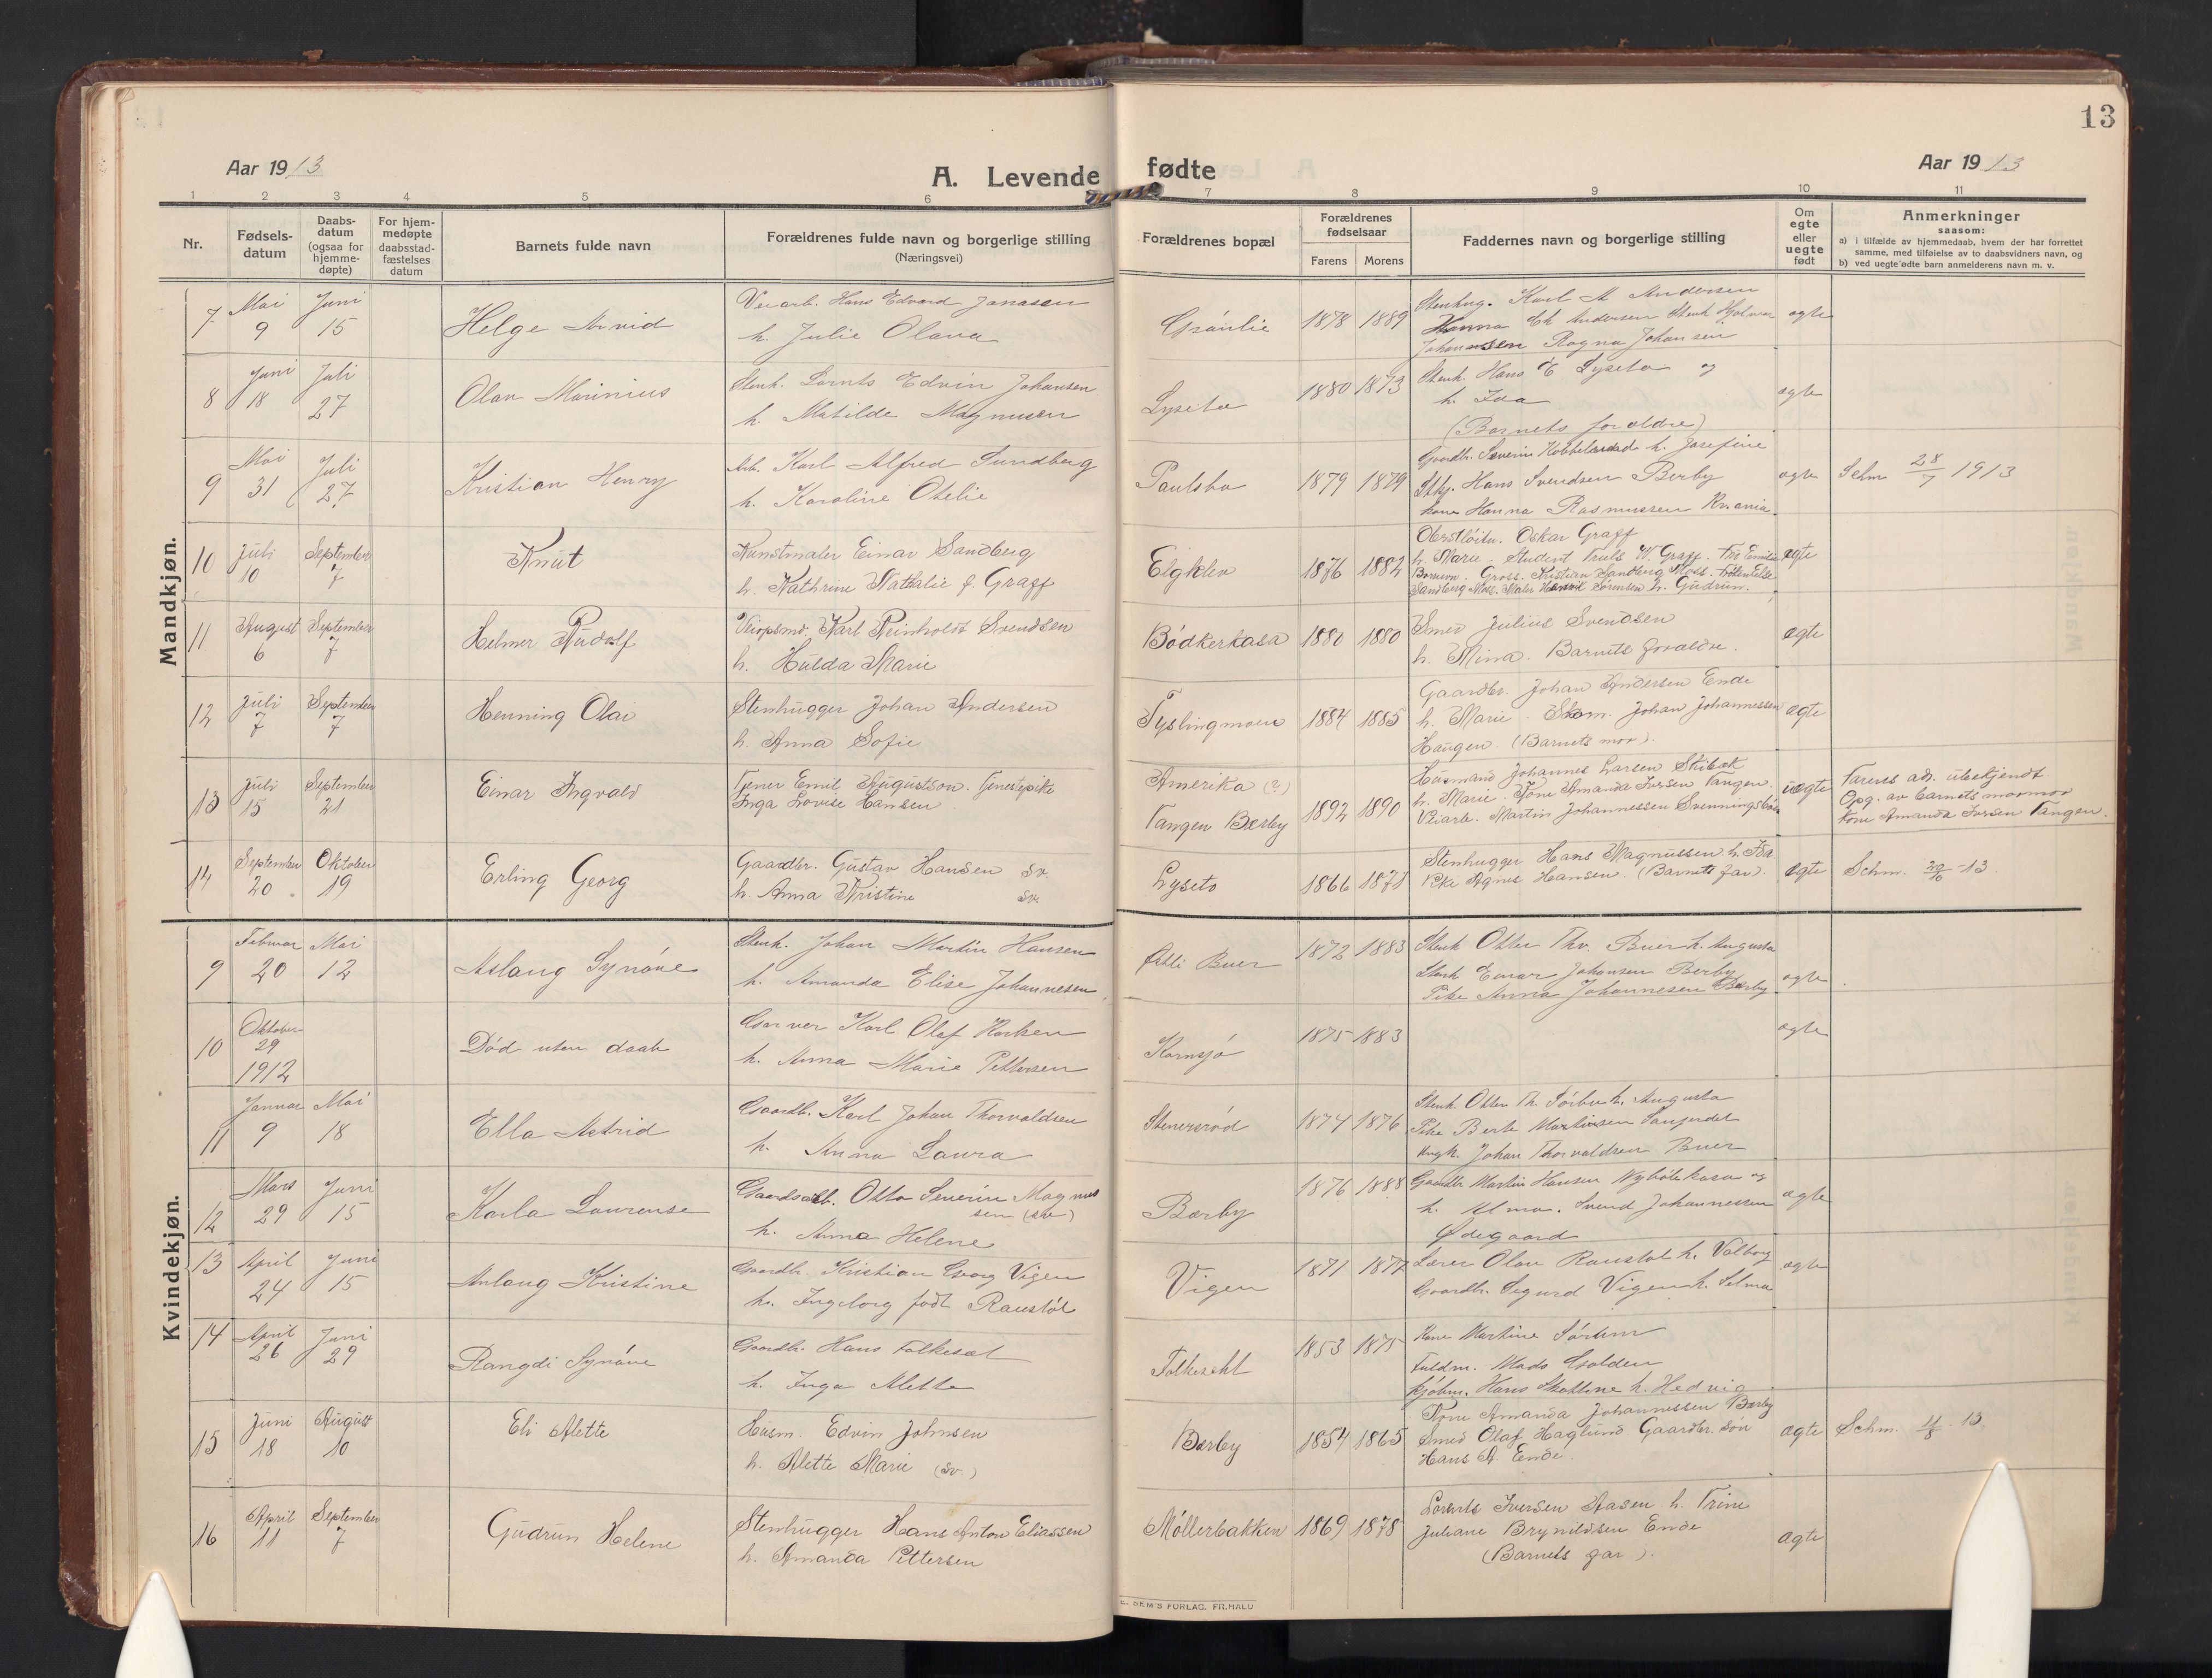 13
Aar 1913
A. Levende fødte
Aar 1913
1 2 3 4 5 6 7 8 9 10 11
Nr.
Fødsels-
datum
Daabs-
datum
(ogsaa for
hjemme-
døpte)
For hjem-
medøpte
daabsstad-
fæstelses
datum
Barnets fulde navn
Forældrenes fulde navn og borgerlige stilling
(Næringsvei)
Forældrenes bopæl
Forældrenes
fødselsaar
Farens Morens
Faddernes navn og borgerlige stilling
Om
egte
eller
uegte
født
Anmerkninger
saasom:
a) i tilfælde av hjemmedaab, hvem der har forrettet
samme, med tilføielse av to daabsvidners navn, og
b) ved uegte fødte barn anmelderens navn m. v.
Mandkjøn.
7 Mai 9 Juni 15
Helge Arvid
Veiarb. Hans Edvard Jonasen
h. Julie Olava
Grønlie 1878 1889
Stenhug. Karl A Andersen
Hanna Ch Andersen Stenh Hjalmar
Johannsen Ragna Johansen
egte
8 Juni 18 Juli 27
Olav Marinius
Stenh. Lornts Edvin Johansen
h. Matilde Magnusen
Lyseto 1880 1873
Stenh. Hans E Lyseto og
h. Ida
(Barnets forældre)
egte
9 Mai 31 Juli 27
Kristian Henry
Arb. Karl Alfred Sundberg
h. Karoline Otelie
Paulsbo 1879 1879
Gaardbr. Severin h. Josefine
Hans Svendsen Berby
kone Hanna Rasmussen Kr.ania.
egte
28/7 1913
10 Juli 10 September 7
Knut
Kunstmaler Einar Sandberg
h. Kathrine Nathalie f. Graff
Elgklev 1876 1882
Oberstløitn. Oskar Graff
h. Marie Student Truls W. Graff. Frk Emilie
Gross. Kristian Sandberg Moss. Frøken Else
Sandberg Moss. Maler Henrik Sørensen h. Gudrun.
egte
11 August 6 September 7
Helmer Rudolf
Veiopsmd. Karl Reinholdt Svendsen
h. Hulda Marie
Bødkerkasa 1880 1880
Smed Julius Svendsen
h. Mina. Barnets forældre.
egte
12 Juli 7 September 7
Henning Olai
Stenhugger Johan Andersen
h. Anna Sofie
Tyslingmoen 1884 1885
Gaardbr. Johan Andersen Ende
h. Marie. Skom. Johan Johannessen
Haugen. (Barnets mor).
egte
13 Juli 15 September 21
Einar Ingvald
Tjener Emil Augustson. Tjenestepike
Inga Lovise Hansen
Amerika (?)
Tangen Berby 1892 1890
Husmand Johannes Larsen Skibak
h. Marie. Kone Amanda Iversen Tangen.
Veiarb. Martin Johannessen
uegte
Farens ad. ubekjendt
Opg. av barnets mormor
kone Amanda Iversen Tangen.
14 September 20 Oktober 19
Erling Georg
Gaardbr. Gustav Hansen Sv.
h. Anna Kristine Sv.
Lyseto 1866 1871
Stenhugger Hans Magnussen h. Ida
Pike Agnes Hansen. (Barnets far).
egte
Schm. 20/10-13.
Kvindekjøn.
9 Februar 20 Mai 12
Aslaug Synøve
Stenh. Johan Martin Hansen
h. Amanda Elise Johannesen
Østli Buer 1872 1883
Stenh Otter Thv. Buer h. Augusta
Stenh Einar Johansen Berby
Pike Anna Johannesen Berby
egte
10 Oktober 29 1912
Død uten daab
Garver Karl Olaf
h. Anna Marie Pettersen
Kornsjø 1875 1883
egte
11 Januar 9 Mai 18
Ella Astrid
Gaardb. Karl Johan Thorvaldsen
h. Anna Laura
Stenersrød 1874 1876
Stenh. Otter Th. Sørbu h. Augusta
Pike Berte Martinsen
Ungk. Johan Thorvaldsen Buer
12 Mars 29 Juni 15
Karla Laurense
Gaardsarb. Otto Severin Magnus
sen (sv)
h. Anna Helene
Berby 1876 1888
Gaardb Martin Hansen Nybølekasa og
h. Alma. Svend Johannessen
Ødegaard
egte
13 April 24 Juni 15
Anlaug Kristine
Gaardb. Kristian Georg Vigen
h. Ingeborg født Raustøl
Vigen 1871 1877
Lærer Olav Raustøl h. Valborg
Gaardb. Sigurd Vigen h. Selma
egte
14 April 26 Juni 29
Rangdi Synøve
Gaardb. Hans Folkesæt
h. Inga Alette
1853 1875
Kone Martine Sørum
Fuldm. Mads Golden
Kjøbm. Hans h. Hedvig
15 Juni 18 August 10
Eli Alette
Husm. Edvin Johnsen
h. Alette Marie (Sv.)
Berby 1854 1865
Kone Amanda Johannessen Berby
Smed Olaf Haglund Gaardbr. søn
Hans A. Ende.
egte
Schm. 11/8 13.
16 April 11 September 7
Gudrun Helene
Stenhugger Hans Anton Eliassen
h. Amanda Pettersen
Møllerbakken 1869 1878
Lorents Iversen Aasen h. Trine
Juliane Brynildsen Ende
(Barnets far).
egte
FORLAG. FR.HALD